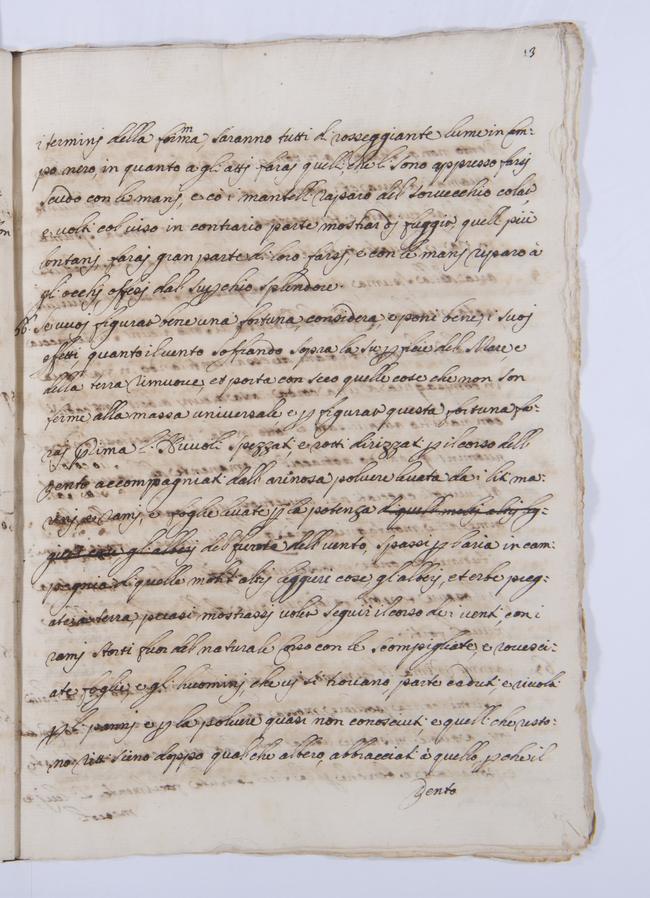 13
i terminj della forma, saranno tutti di rosseggiante lume in Cam-
po nero in quanto a gli atti faraj quelli, che li sono appresso farsj
scudo con le manj, e co i mantelli riparo dal soverchio colar
e volti col viso in contrario parte mostrar di fuggir, quelli più
lontanj, faraj gran parte di loro farsj, e con le manj riparo à
gli occhij offesi dal superchio splendore.
66. Se vuoj figurar bene una fortuna, considera, e poni bene, i suoj
effetti quanto il vento soffiando sopra la superficie del Mare e
della terra rimuove, et porta con seco quelle cose che non son
ferme alla massa universale, e per figurar questa fortuna fa-
raj prima li Nuvoli spezzati, e rotti dirizzati per il corso dell
vento accompagniati dall'arinosa polvere levata da i liti ma-
rinj et ramj, e foglie levate per la potenza di quelli molti altri leg-
gieri cose gl'alberj del furore dell vento, spassi per l'aria in cam-
pagnia di quelle molt'altrj leggieri cose gl'alberj, et erbe pieg-
ate à terra quasi mostrassj voler seguir il corso de i venti, con i
ramj storti fuor del naturale corso con le scompigliate, e rovesci-
ate foglie, e gl'huominj che vj si trovano parte caduti e rivolti
per li pannj e per la polvere quasi non conosciuti, e quelli che resto-
no ritti sieno doppo qualche albero, abbracciati à quello, perche il
vento